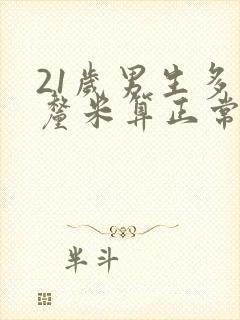 21歲男生多
釐米算正常
半斗